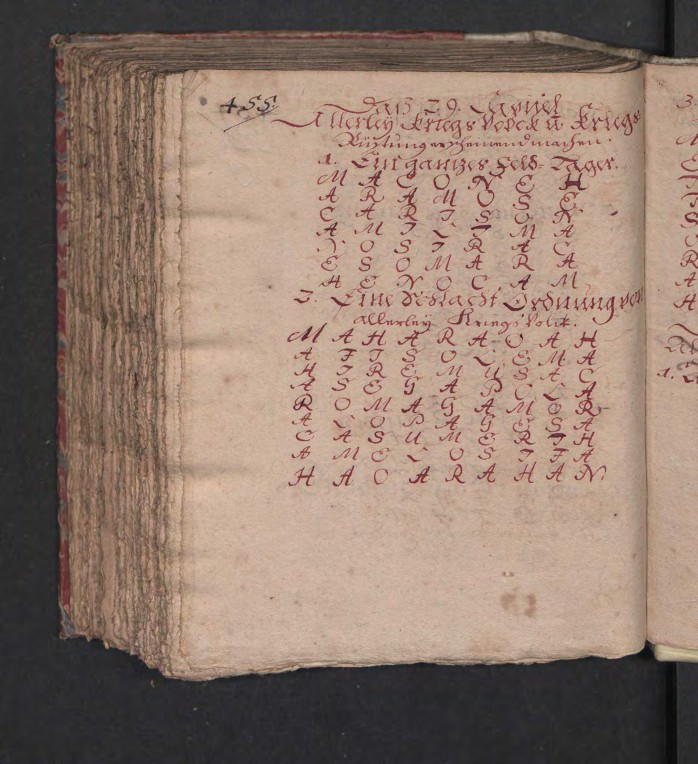 455.
Daß 29. Capitel
Allerley Kriegs Volck u Kriegs
Rüstung erscheinend machen.
1. Ein gantzes Feld-Läger.
M A C O N E H
A R A M O S E
C A R I S O N
A M I L I M A
N O S I R A C
E S O M A R A
H E N O C A M
3. Eine Schlacht Ordnung von
allerley Kriegs Volck.
M A H A R A O A H
A T T S O L E M A
H T R E M U S A C
A S E G A P C L A
R O M A G A M O R
A L O P A G E S A
C A S U M E R T H
A M E L O S T T A
H A O A R A H A N.